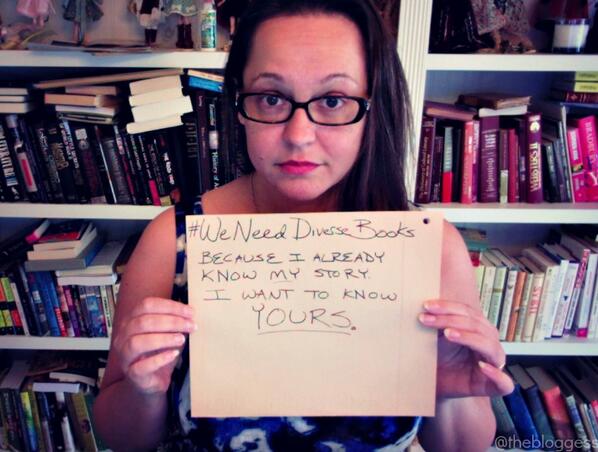 #WeNeedDiverseBooks
BECAUSE I ALREADY
KNOW MY STORY.
I WANT TO KNOW
YOURS.
@thebloggess